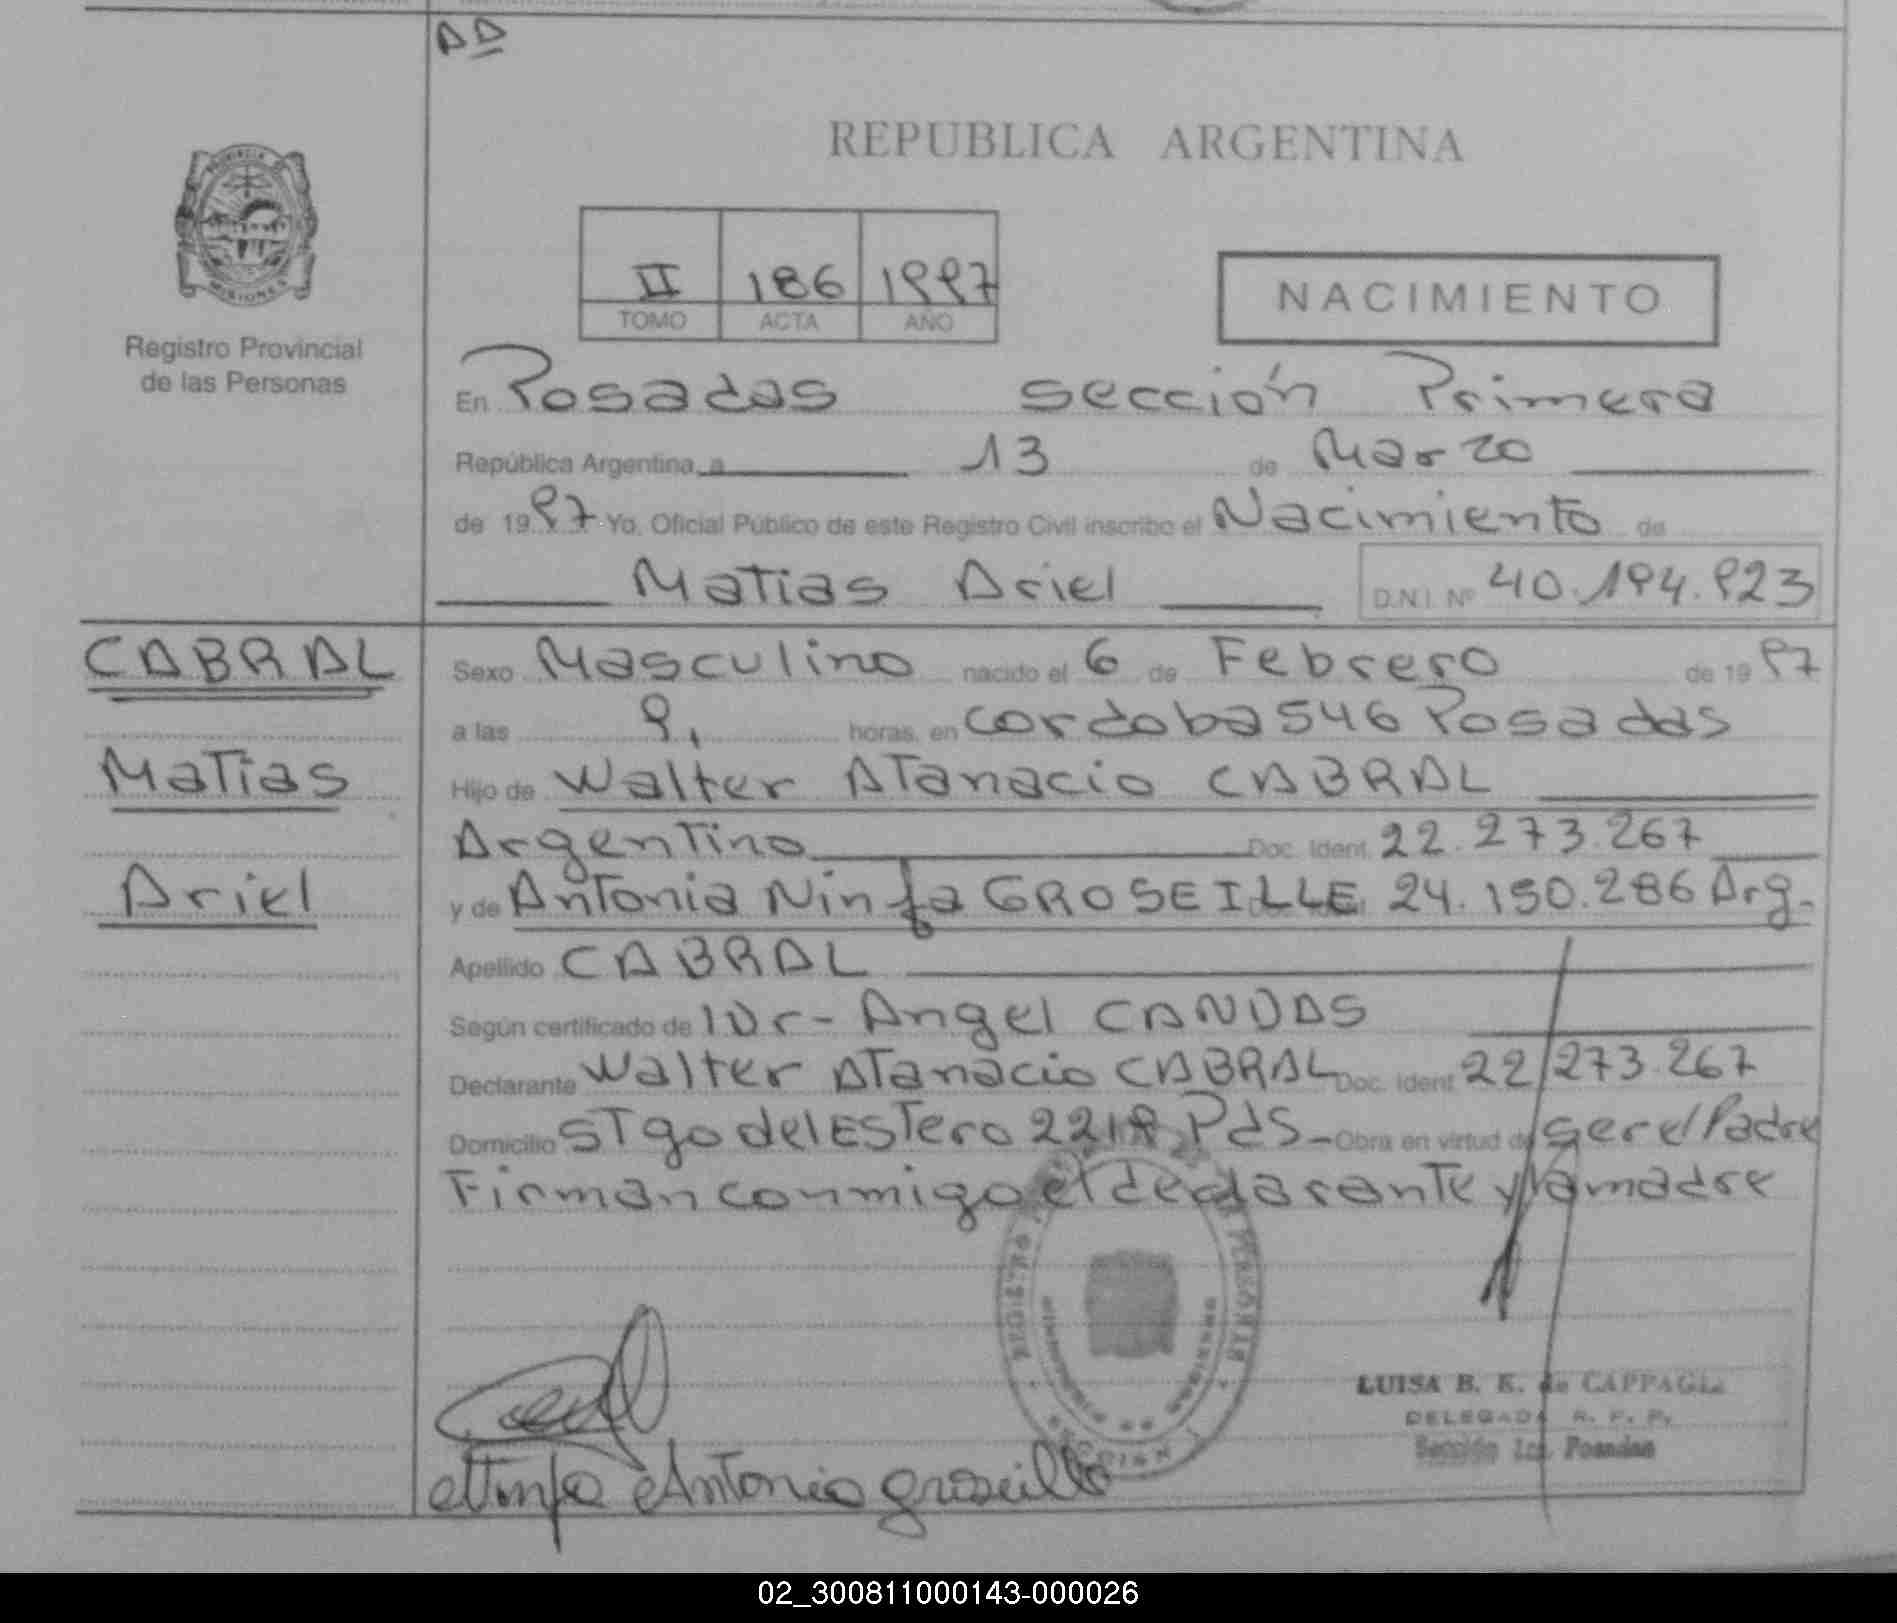 AD
REPUBLICA ARGENTINA
II 186 1997
TOMO ACTA AÑO
NACIMIENTO
PROVINCIA DE
MISIONES
Registro Provincial
de las Personas
En Posadas sección Primera
República Argentina, a 13 de Marzo
de 1997 Yo, Oficial Público de este Registro Civil inscribo el Nacimiento de
Matias Ariel D.N.I. Nº 40.194.923
CABRAL
Matias
Ariel
Sexo Masculino nacido el 6 de Febrero de 1997
a las 9, horas, en cordoba 546 Posadas
Hijo de Walter Atanacio CABRAL
Argentino Doc. Ident. 22.273.267
y de Antonia Ninfa GROSEILLE 24.150.286 Arg.
Apellido CABRAL
Según certificado de Dr- Angel
Declarante Walter Atanacio CABRAL Doc. Ident 22.273.267
Domicilio STgo del Estero 2219 Pds- Obra en virtud de ser el Padre
Firman conmigo el declarante y la madre
REGISTRO PERSONAS
SECCION 1
LUISA B. K. de CAPPAGLI
DELEGADA R. P. P.
Sección 1ra. Posadas
Ninfa Antonia Groseille
02_300811000143-000026